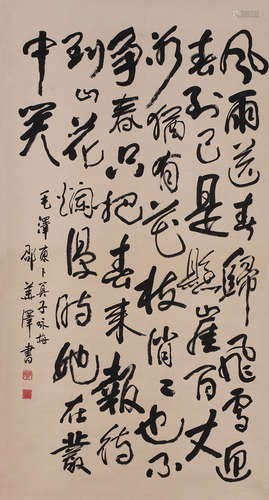 風雨送春歸飛雪迎
春到已是懸崖百丈
冰猶有花枝俏々也不
争春只把春来報待
到山花爛漫時她在叢
中笑
毛澤東卜算子咏梅
邵華澤書